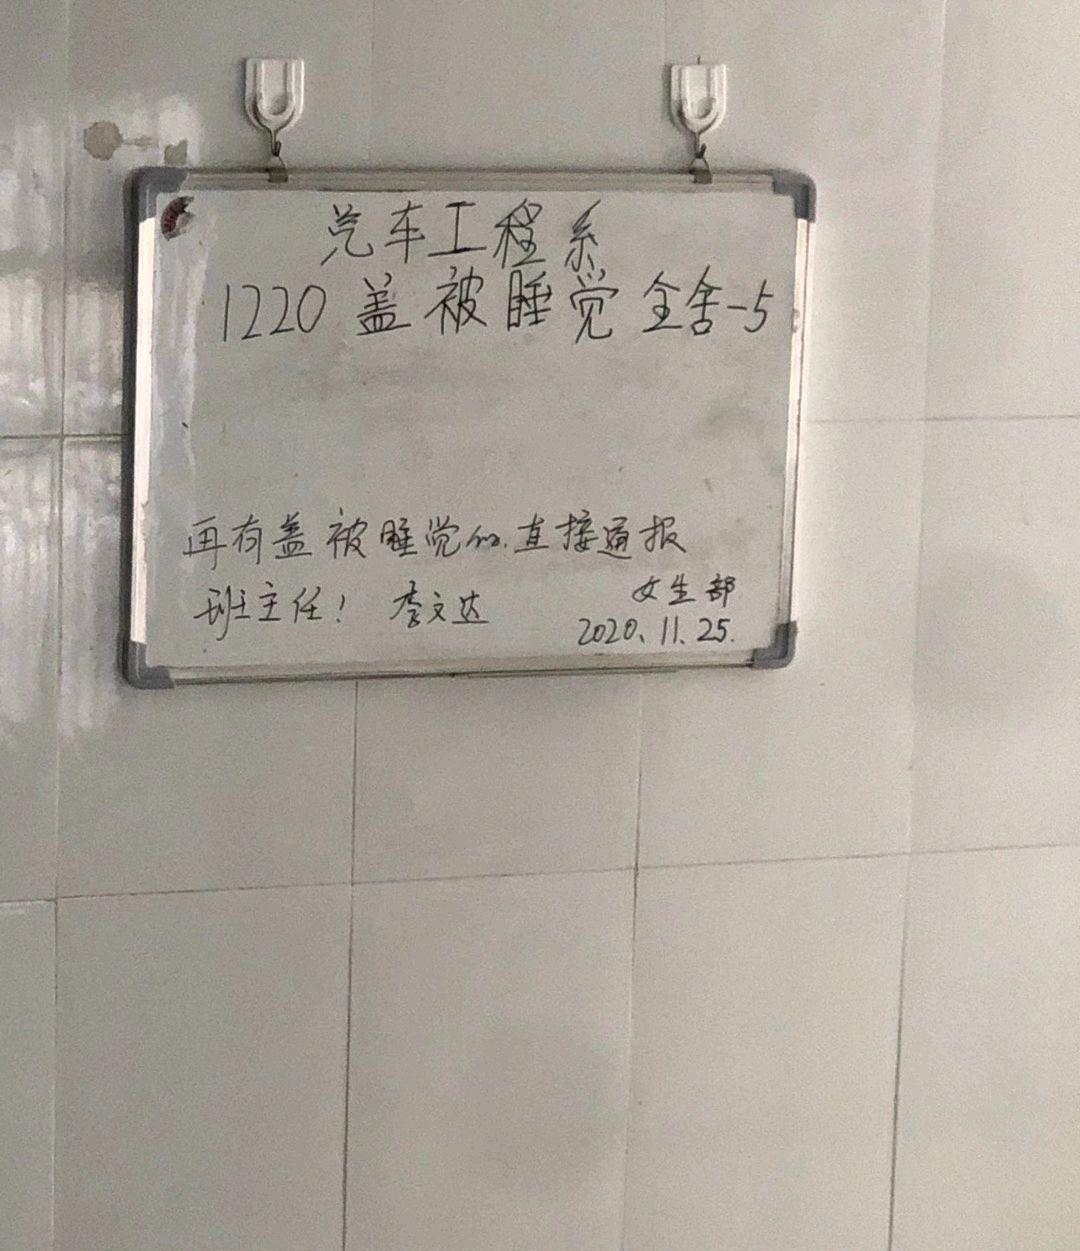 汽车工程系
1220 盖被睡觉 全舍-5
再有盖被睡觉的.直接通报
班主任! 李文达
女生部
2020.11.25.